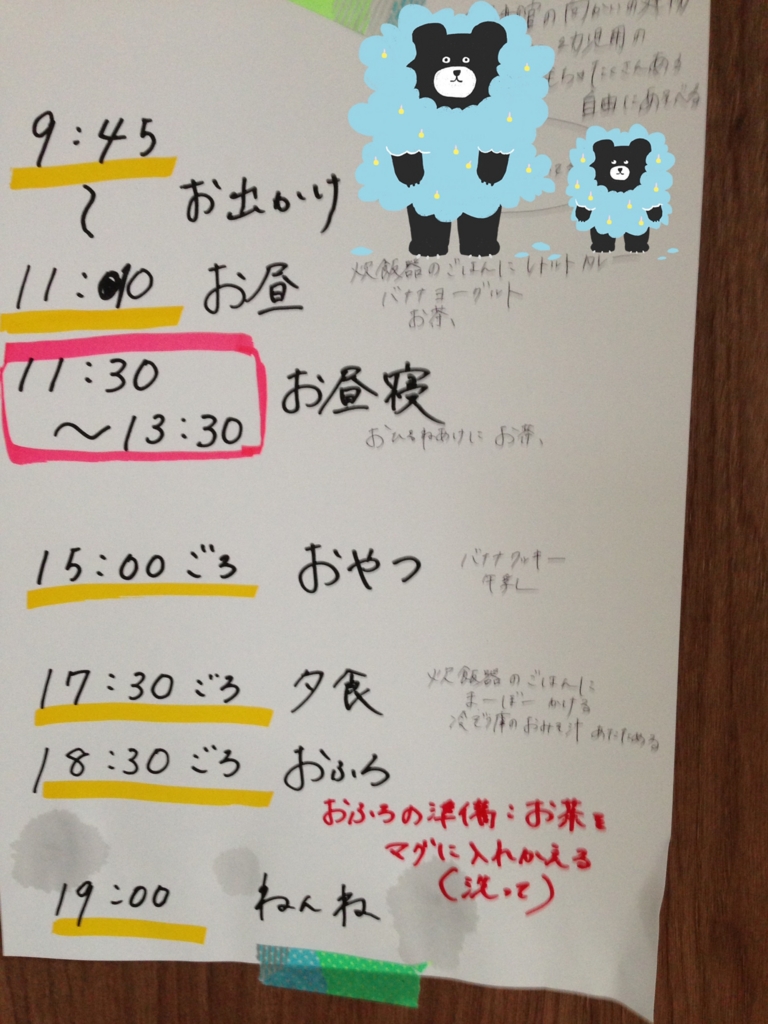 の向かいの建物
幼児用の
おもちゃたくさんある
自由にあそべる
9:45
〜 お出かけ
11:00 お昼
炊飯器のごはんにレトルトカレー
バナナヨーグルト
お茶、
11:30
〜13:30 お昼寝
おひるねあけに お茶、
15:00ごろ おやつ
バナナクッキー
牛乳
17:30ごろ 夕食
炊飯器のごはんに
まーぼー かける
冷ぞう庫のおみそ汁 あたためる
18:30ごろ おふろ
おふろの準備:お茶を
マグに入れかえる
(洗って)
19:00 ねんね